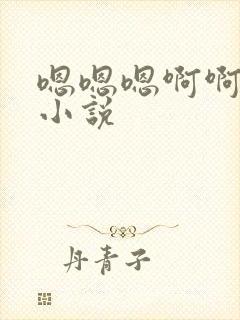 嗯嗯嗯啊啊
小說
丹青子